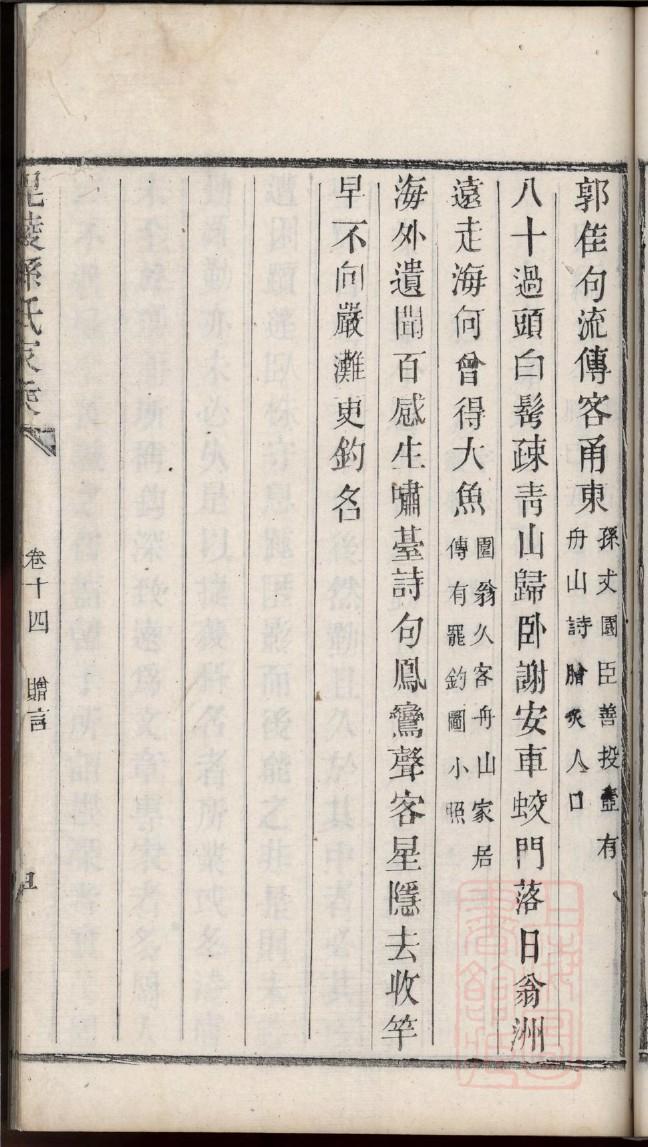 郭佳句流傳客甬東
孫丈國臣善投壺有
舟山詩膾炙人口
八十過頭白髩疎青山歸卧謝安車蛟門落日翁洲
遠走海何曾得大魚
圖翁久客舟山家居
傳有罷釣圖小照
海外遺聞百感生嘯臺詩句鳳鸞聲客星隱去收竿
早不向嚴灘更釣名
毘陵孫氏家乘
卷十四 贈言